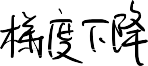 梯度下降